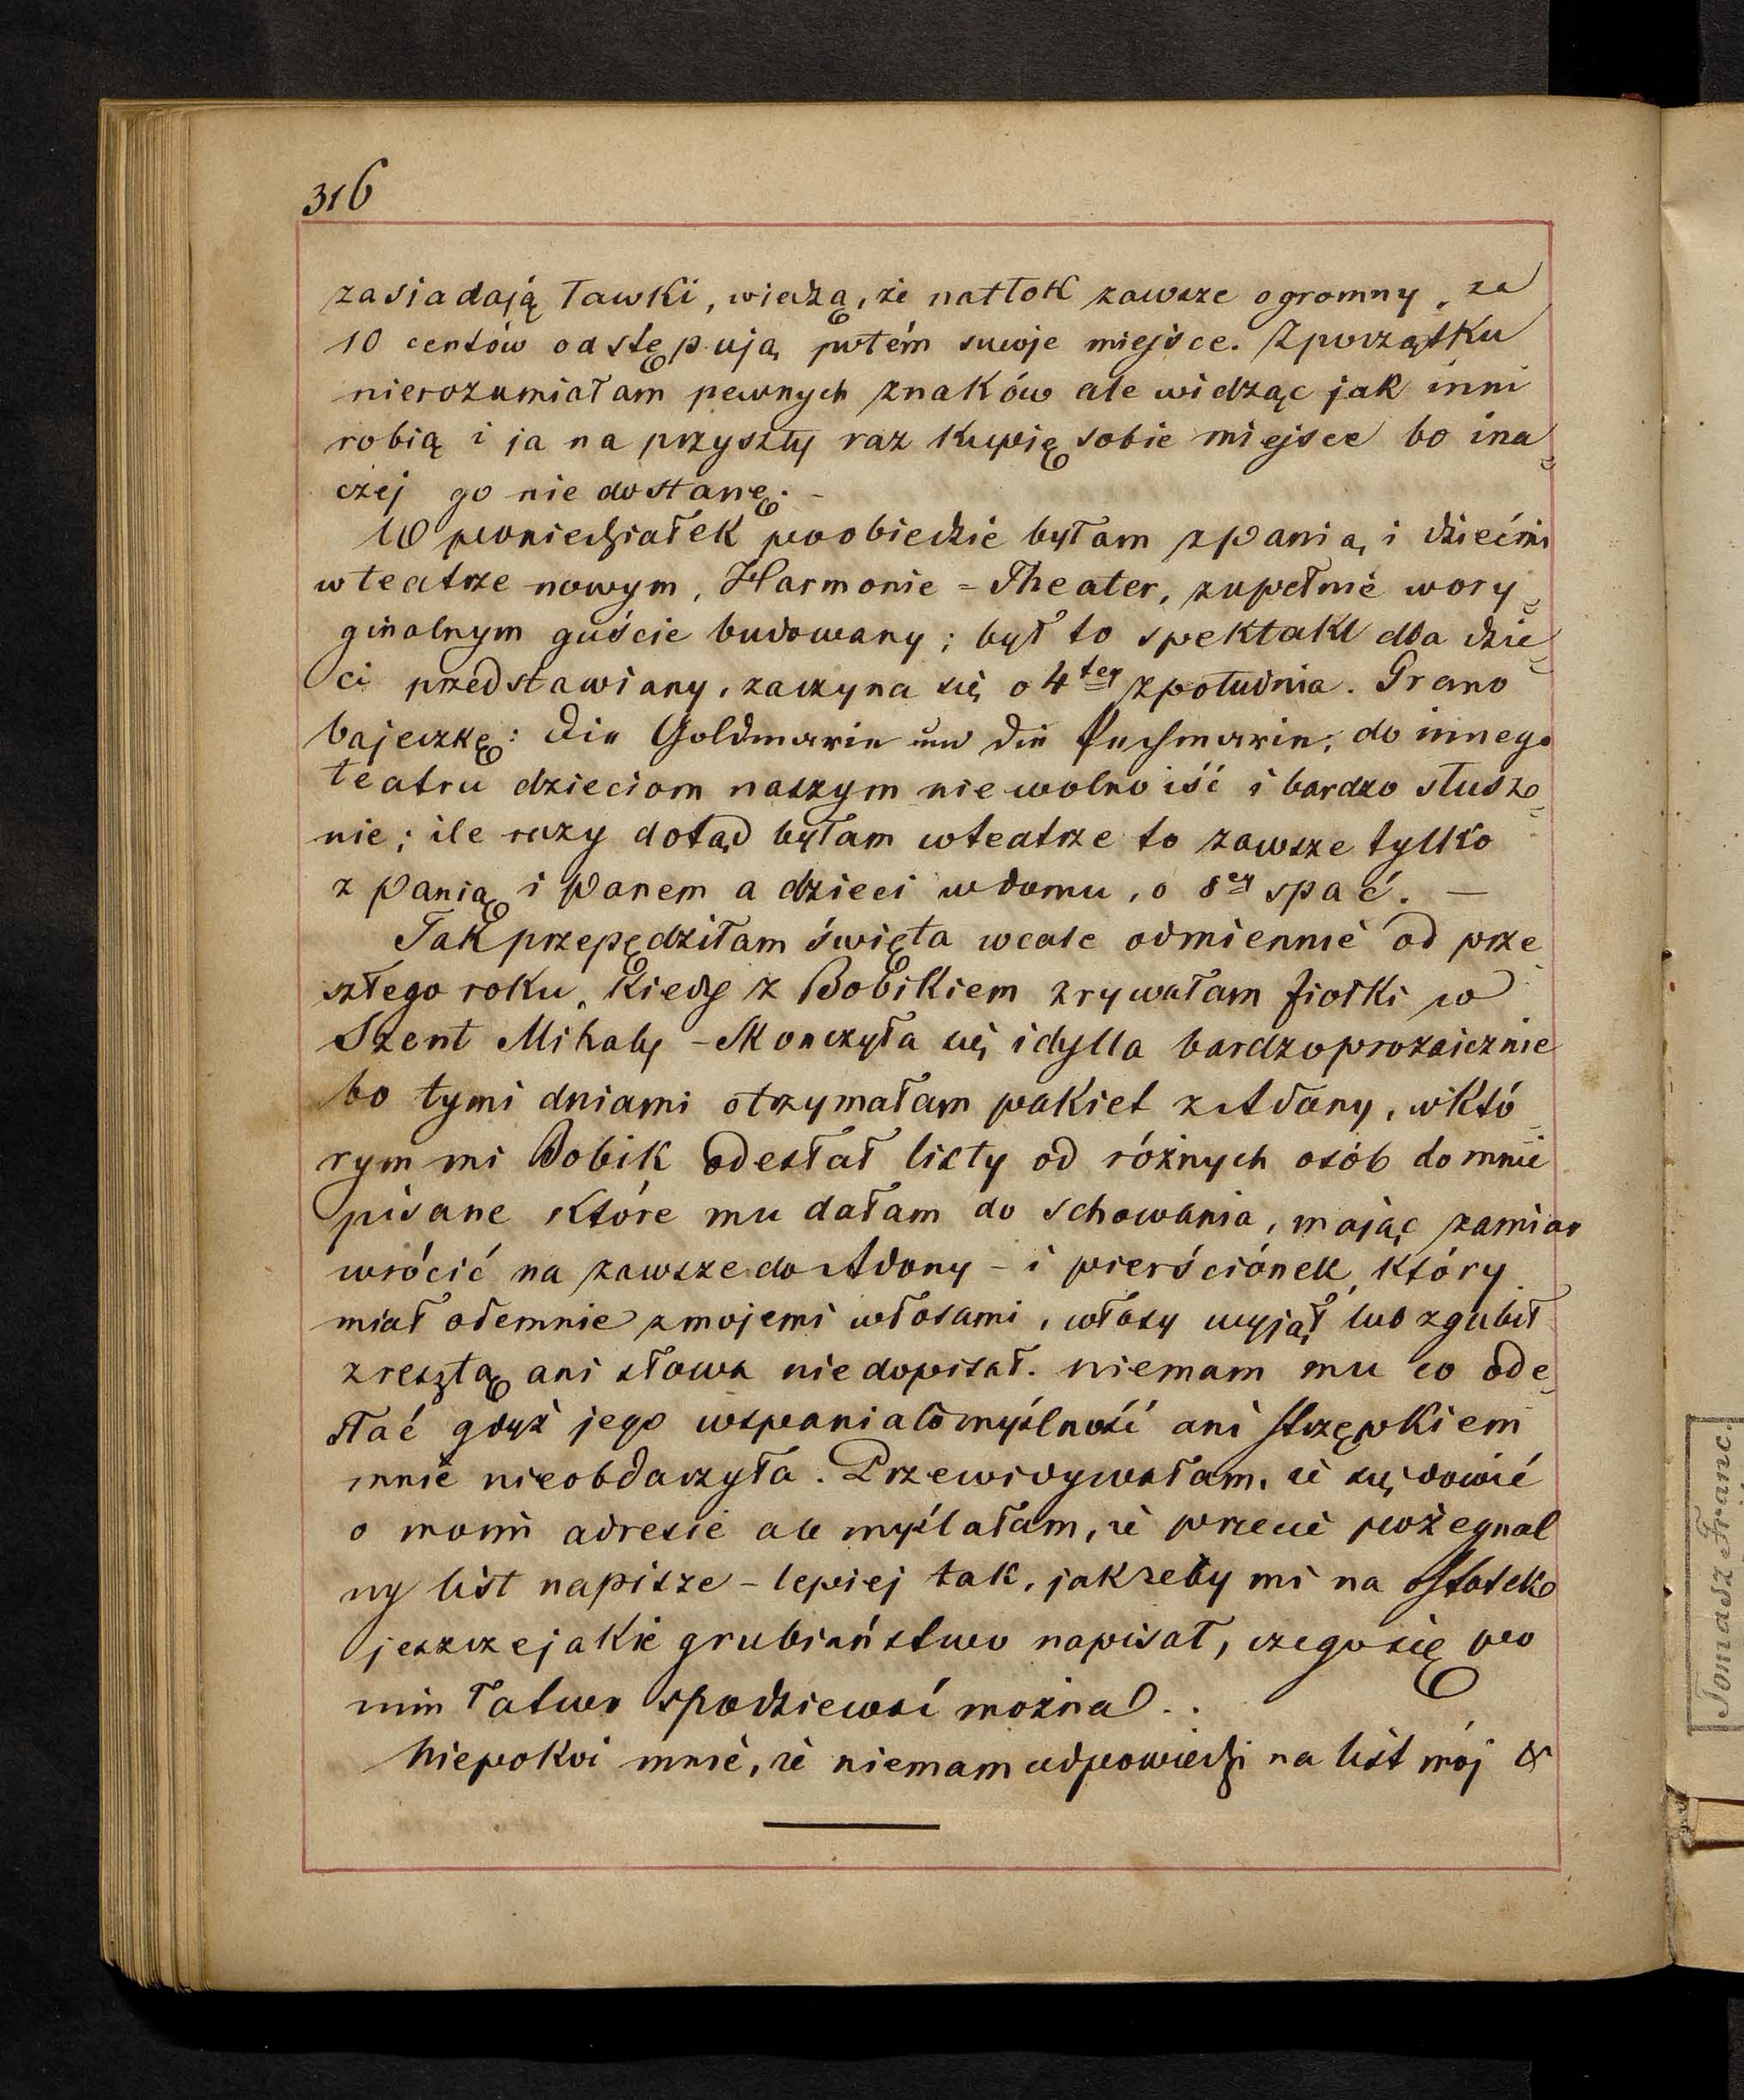 316
zasiadają ławki, wiedzą, że natłok zawsze ogromny, za
10 centów odstępują potém swoje miejsce. Zpoczątku
nierozumiałam pewnych znaków ale widząc jak inni
robią i ja na przyszły raz kupię sobie miejsce bo ina=
czej go nie dostanę. -
W poniedziałek poobiedzie byłam z Panią i dziećmi
w teatrze nowym, Harmonie = Theater, zupełnie wory=
ginalnym guście budowany; był to spektakl dla dzie=
ci przedstawiany, zaczyna się o 4tej zpołudnia. Grano
bajeczkę: Die Goldmarie und die Pechmarie, do innego
teatru dzieciom naszym niewolno iść i bardzo słusz=
nie; ile razy dotąd byłam w teatrze to zawsze tylko
z Panią i Panem a dzieci w domu, o 8ej spać. —
Tak przepędziłam święta wcale odmiennie od prze=
szłego roku, kiedy z Bobikiem zrywałam fiołki w
Szent Mihaly - Skonczyła się idylla bardzo prozaicznie
bo tymi dniami otrzymałam pakiet z Adony, w któ=
rym mi Bobik odesłał listy od różnych osób do mnie
pisane które mu dałam do schowania, mając zamiar
wrócić na zawsze do Adony - i pierściónek, który
miał odemnie z mojemi włosami, włosy wyjął lub zgubił
zresztą ani słowa niedopisał. niemam mu co ode=
słać gdyż jego wspaniałomyślność ani strzępkiem
mnie nieobdarzyła. Przewidywałam, że się dowie
o moim adresie ale myślałam, że przecie pożegnal
ny list napisze - lepiej tak, jak żeby mi na ostatek
jeszcze jakie grubiaństwo napisał, czego się po
nim łatwo spodziewać można..
Niepokoi mnie, że niemam odpowiedzi na list mój &
Tomasz Franc.